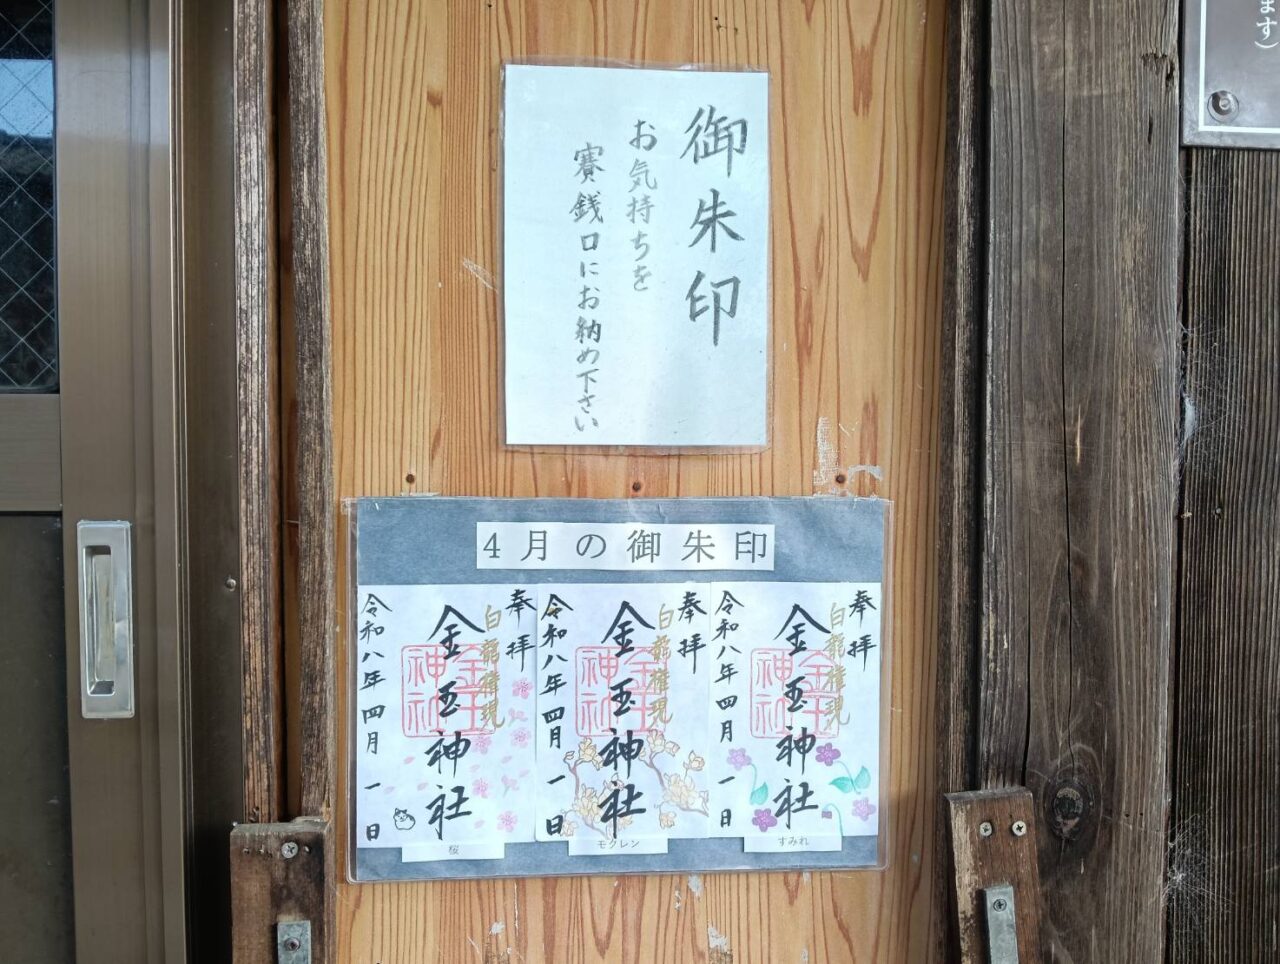 御朱印
お気持ちを
賽銭口にお納め下さい
4月の御朱印
奉拝
白龍権現
金玉神社
金玉神社
令和八年四月一日
桜
奉拝
白龍権現
金玉神社
金玉神社
令和八年四月一日
モクレン
奉拝
白龍権現
金玉神社
金玉神社
令和八年四月一日
すみれ
ます）